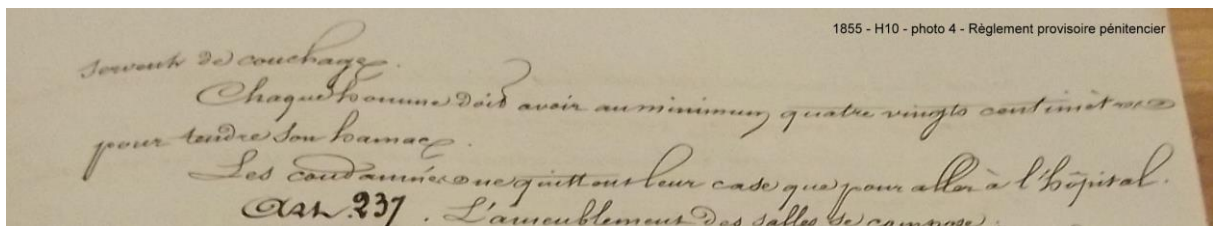 1855 - H10 - photo 4 - Règlement provisoire pénitencier
servent de couchage.
Chaque homme doit avoir au minimum quatre vingts centimètres
pour tendre son hamac.
Les condamnés ne quittent leur case que pour aller à l'hôpital.
Art. 237. L'ameublement des salles se compose.